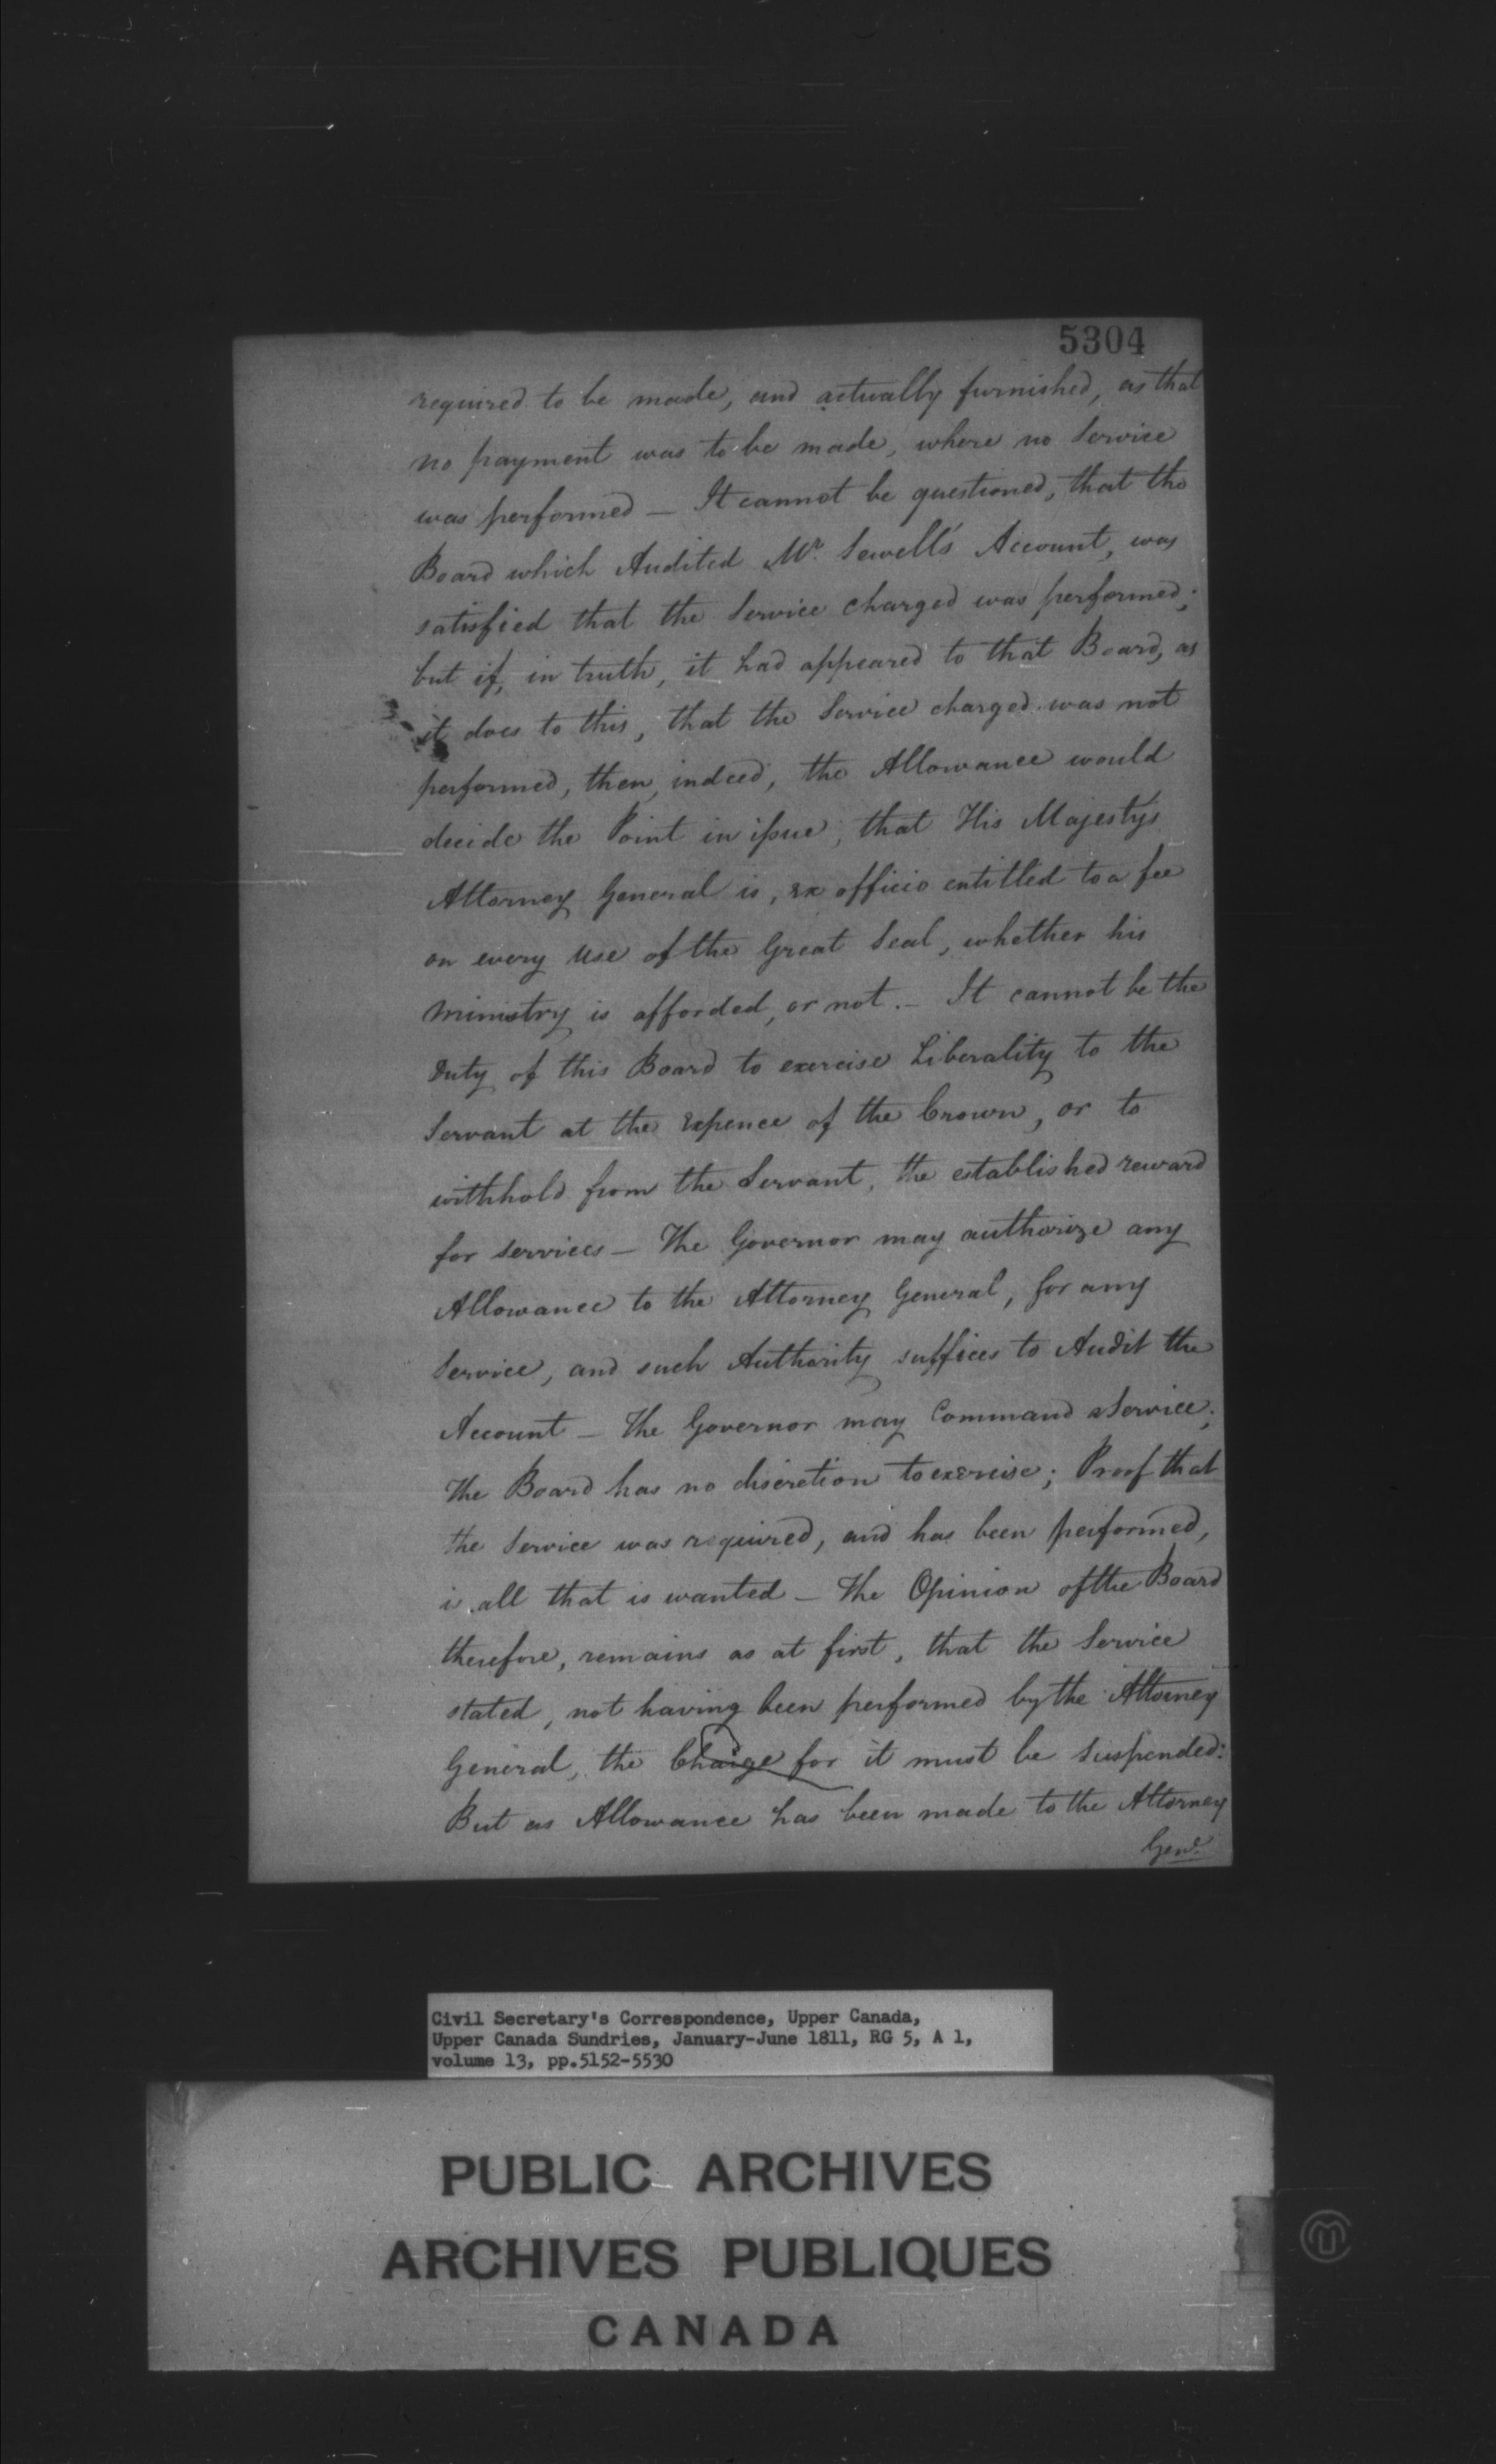 5304
required to be made, and actually furnished, as that
no payment was to be made, where no Service
was performed — It cannot be questioned, that the
Board which Audited Mr. Sewell's Account, was
satisfied that the Service charged was performed;
but if, in truth, it had appeared to that Board, as
it does to this, that the Service charged was not
performed, then, indeed, the Allowance would
decide the Point in issue; that His Majesty's
Attorney General is, ex officio entitled to a fee
on every Use of the Great Seal, whether his
Ministry is afforded, or not. — It cannot be the
Duty of this Board to exercise Liberality to the
Servant at the Expence of the Crown, or to
withhold from the Servant, the established reward
for services — The Governor may authorize any
Allowance to the Attorney General, for any
Service, and such Authority suffices to Audit the
Account — The Governor may Command a Service;
The Board has no discretion to exercise; Proof that
the Service was required, and has been performed,
is all that is wanted — The Opinion of the Board
therefore, remains as at first, that the Service
stated, not having been performed by the Attorney
General, the Charge for it must be suspended:
But as Allowance has been made to the Attorney
Genl.
Civil Secretary's Correspondence, Upper Canada,
Upper Canada Sundries, January-June 1811, RG 5, A 1,
volume 13, pp.5152-5530
PUBLIC ARCHIVES
ARCHIVES PUBLIQUES
CANADA